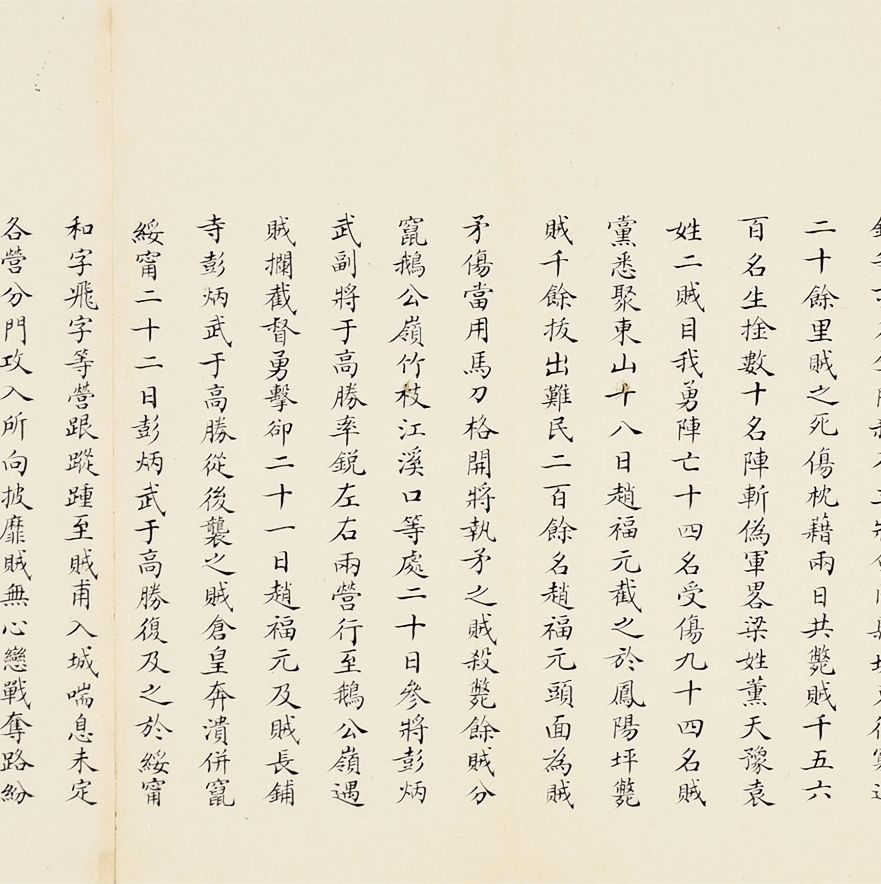 二十餘里賊之死傷枕藉兩日共斃賊千五六
百名生拴數十名陣斬偽軍畧梁姓薰天豫袁
姓二賊目我勇陣亡十四名受傷九十四名賊
黨悉聚東山十八日趙福元截之於鳳陽坪斃
賊千餘拔出難民二百餘名趙福元頭面為賊
矛傷當用馬刀格開將執矛之賊殺斃餘賊分
竄鵝公嶺竹枝江溪口等處二十日參將彭炳
武副將于高勝率銳左右兩營行至鵝公嶺遇
賊攔截督勇擊卻二十一日趙福元及賊長鋪
寺彭炳武于高勝從後襲之賊倉皇奔潰併竄
綏甯二十二日彭炳武于高勝復及之於綏甯
和字飛字等營跟蹤踵至賊甫入城喘息未定
各營分門攻入所向披靡賊無心戀戰奪路紛